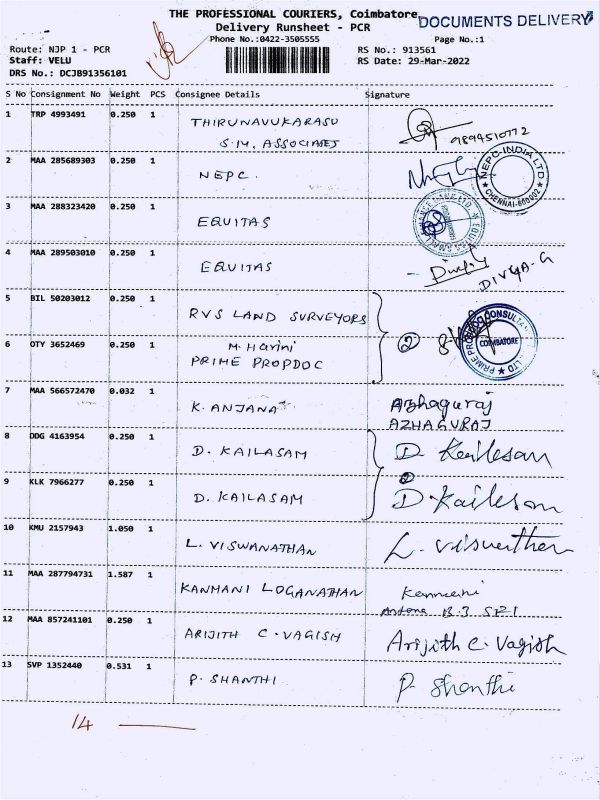 THE PROFESSIONAL COURIERS, Coimbatore
DOCUMENTS DELIVERY
Delivery Runsheet - PCR
Phone No.:0422-3505555
Page No.:1
Route: NJP 1 - PCR
Staff: VELU
DRS No.: DCJB91356101
RS No.: 913561
RS Date: 29-Mar-2022
S No Consignment No Weight PCS Consignee Details Signature
1 TRP 4993491 0.250 1 THIRUNAVUKARASU
S.M. ASSOCIATES
9894510772
2 MAA 285689303 0.250 1 NEPC.
NEPC INDIA LTD
CHENNAI-600002
3 MAA 288323420 0.250 1 EQUITAS
4 MAA 289503010 0.250 1 EQUITAS
DIVYA-G
5 BIL 50203012 0.250 1 RVS LAND SURVEYORS
6 OTY 3652469 0.250 1 M. Harini
PRIME PROPDOC
2
COIMBATORE
7 MAA 566572470 0.032 1 K. ANJANA Azhaguraj
AZHAGURAJ
8 DDG 4163954 0.250 1 D. KAILASAM D. Kailesam
2
9 KLK 7966277 0.250 1 D. KAILASAM D. Kailesam
10 KMU 2157943 1.050 1 L. VISWANATHAN L. Viswanthan
11 MAA 287794731 1.587 1 KANMANI LOGANATHAN Kanmani
12 MAA 857241101 0.250 1 ARIJITH C. VAGISH Arijith C. Vagish
13 SVP 1352440 0.531 1 P. SHANTHI P. Shanthi
14